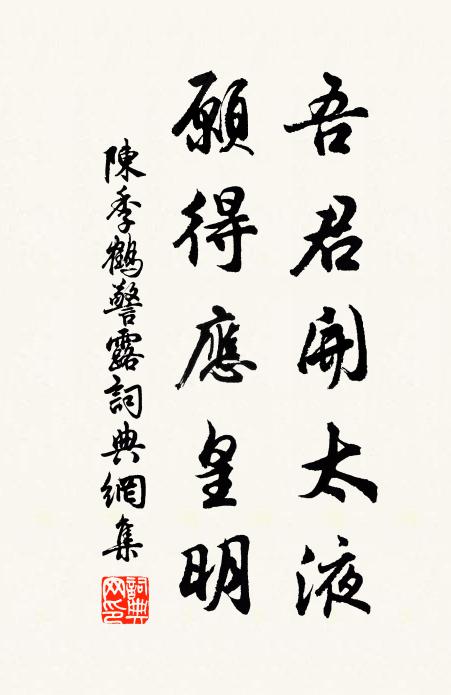 吾君開太液
願得應皇明
陳季鶴警露詞典網集
詞典網印